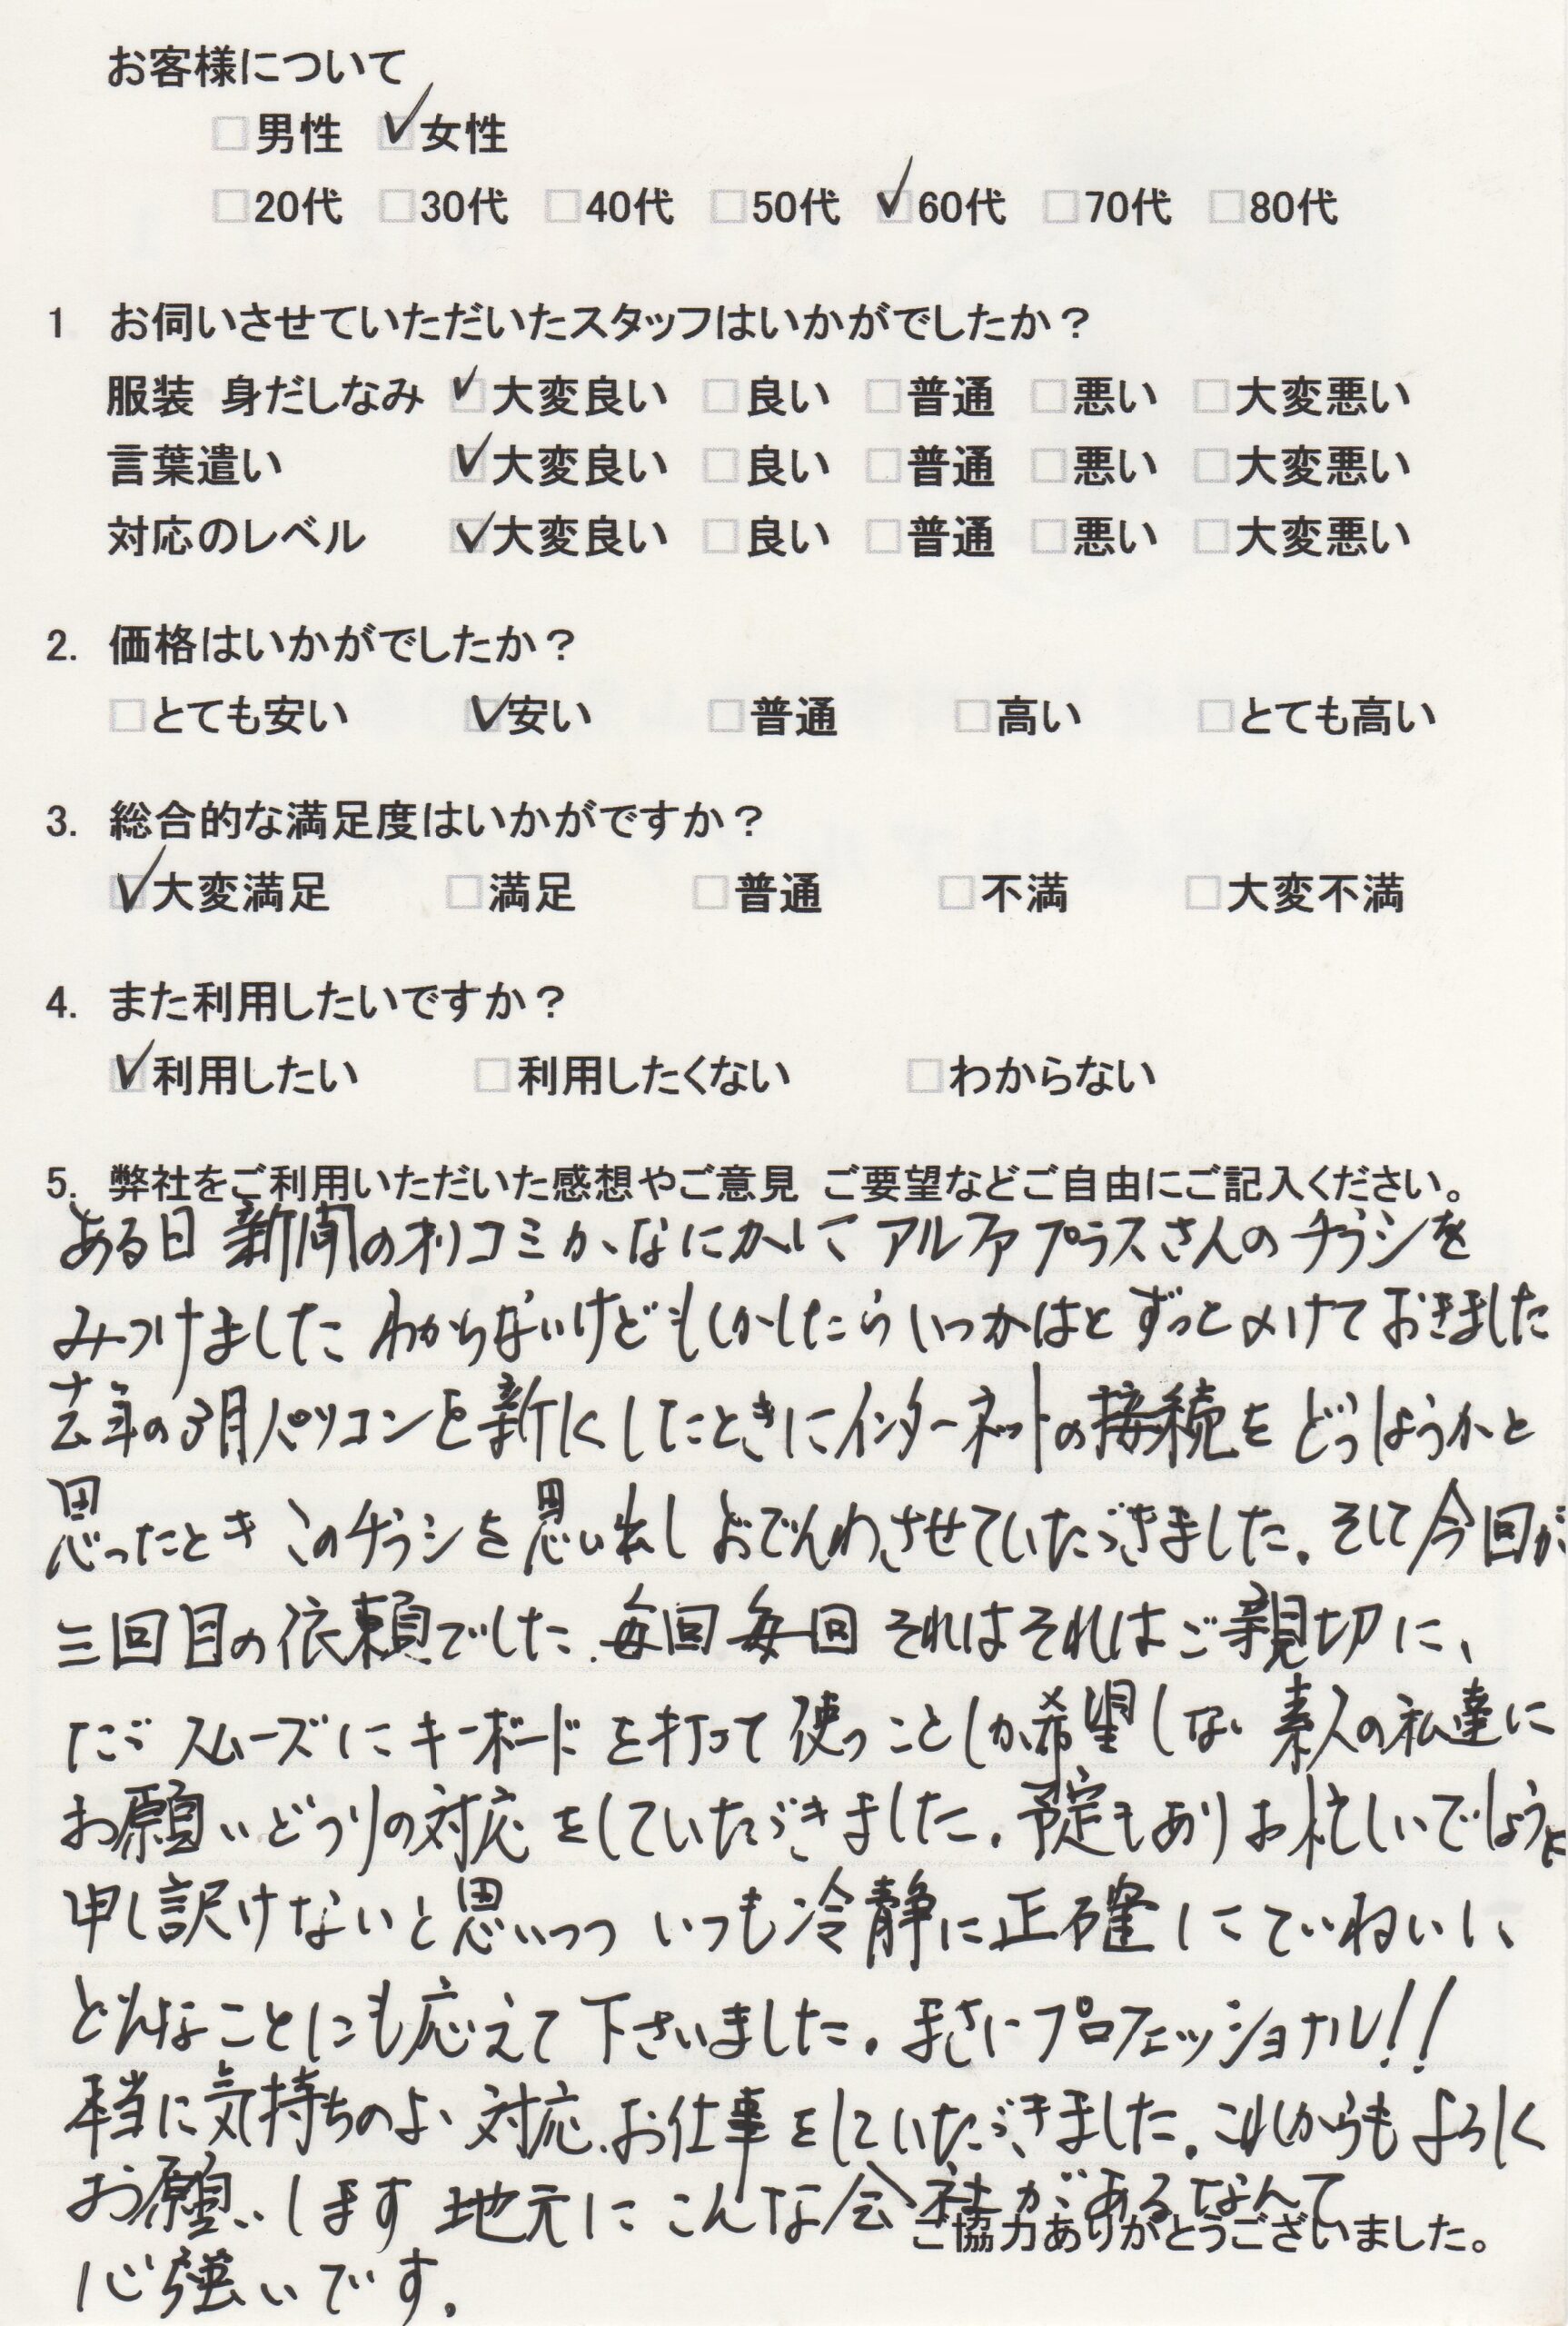 お客様について
□男性 ☑女性
□20代 □30代 □40代 □50代 ☑60代 □70代 □80代
1 お伺いさせていただいたスタッフはいかがでしたか？
服装 身だしなみ ☑大変良い □良い □普通 □悪い □大変悪い
言葉遣い ☑大変良い □良い □普通 □悪い □大変悪い
対応のレベル ☑大変良い □良い □普通 □悪い □大変悪い
2. 価格はいかがでしたか？
□とても安い ☑安い □普通 □高い □とても高い
3. 総合的な満足度はいかがですか？
☑大変満足 □満足 □普通 □不満 □大変不満
4. また利用したいですか？
☑利用したい □利用したくない □わからない
5. 弊社をご利用いただいた感想やご意見 ご要望などご自由にご記入ください。
ある日 新聞のオリコミか、なにかにて アルファプラスさんの チラシを
みつけました わからないけどもしかしたら いつかはと ずっとのけて おきました
去年の3月パソコンを新しくしたときにインターネットの接続を どうしようかと
思ったとき このチラシを思い出し おでんわさせていただきました。そして今回が
三回目の依頼でした。毎回毎回 それはそれはご親切に、
ただ スムーズに キーボードを打って 使うことしか希望しない 素人の私達に
お願いどうりの対応をしていただきました。予定もありお忙しいでしょうに
申し訳けないと思いつつ いつも冷静に正確にていねいに、
どんなことにも応えて下さいました。まさにプロフェッショナル!!
本当に気持ちのよい対応、お仕事をしていただきました。これからもよろしく
お願いします 地元に こんな会社があるなんて
ご協力ありがとうございました。
心強いです。